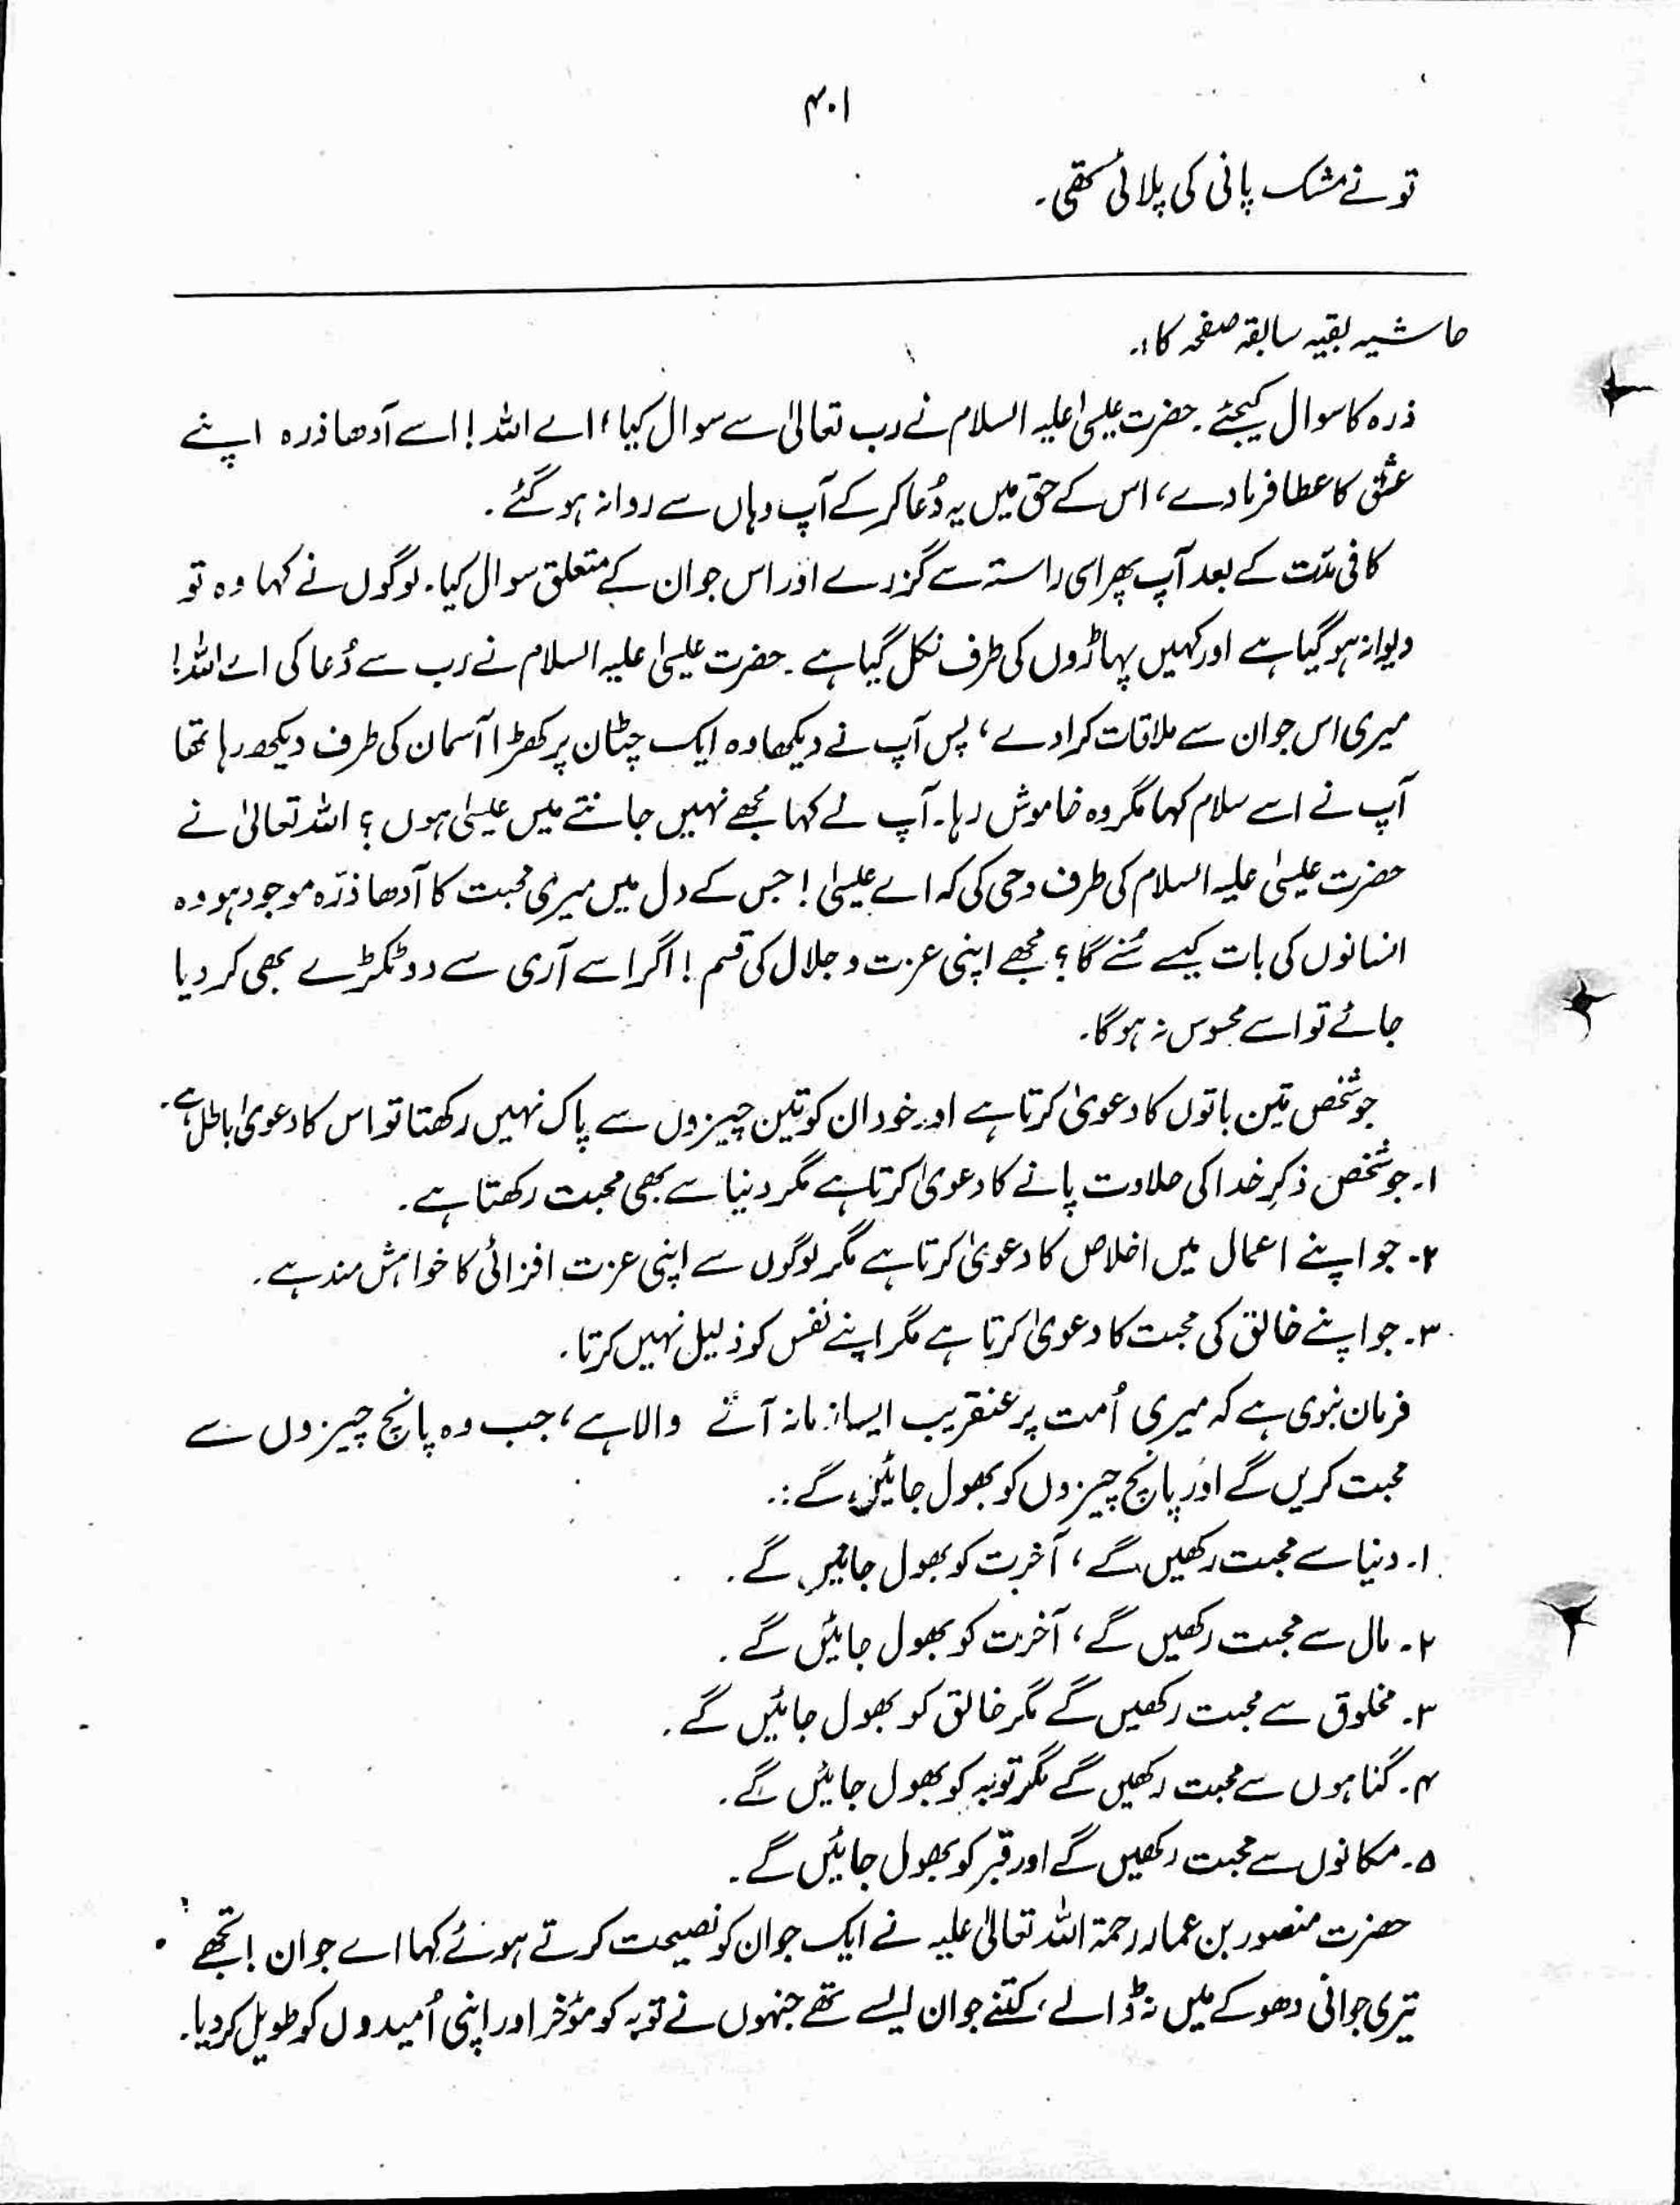 ۴۰۱
تو نے مشک پانی کی پلائی تھی۔
حاشیہ بقیہ سابقہ صفحہ کا:۔
ذرہ کا سوال کیجئے۔ حضرت عیسیٰ علیہ السلام نے رب تعالیٰ سے سوال کیا، اے اللہ! اسے آدھا ذرہ اپنے
عشق کا عطا فرما دے، اس کے حق میں یہ دُعا کر کے آپ وہاں سے روانہ ہو گئے۔
کافی مدّت کے بعد آپ پھر اسی راستہ سے گزرے اور اس جوان کے متعلق سوال کیا۔ لوگوں نے کہا وہ تو
دیوانہ ہو گیا ہے اور کہیں پہاڑوں کی طرف نکل گیا ہے۔ حضرت عیسیٰ علیہ السلام نے رب سے دُعا کی اے اللہ!
میری اس جوان سے ملاقات کرا دے، پس آپ نے دیکھا وہ ایک چٹان پر کھڑا آسمان کی طرف دیکھ رہا تھا
آپ نے اسے سلام کہا مگر وہ خاموش رہا۔ آپ نے کہا مجھے نہیں جانتے میں عیسٰی ہوں؟ اللہ تعالیٰ نے
حضرت عیسیٰ علیہ السلام کی طرف وحی کی کہ اے عیسیٰ! جس کے دل میں میری محبت کا آدھا ذرّہ موجود ہو وہ
انسانوں کی بات کیسے سُنے گا؟ مجھے اپنی عزت و جلال کی قسم! اگر اسے آری سے دو ٹکڑے بھی کر دیا
جائے تو اسے محسوس نہ ہوگا۔
جو شخص تین باتوں کا دعویٰ کرتا ہے اور خود ان کو تین چیزوں سے پاک نہیں رکھتا تو اس کا دعویٰ باطل ہے۔
۱۔ جو شخص ذکرِ خدا کی حلاوت پانے کا دعویٰ کرتا ہے مگر دنیا سے بھی محبت رکھتا ہے۔
۲۔ جو اپنے اعمال میں اخلاص کا دعویٰ کرتا ہے مگر لوگوں سے اپنی عزت افزائی کا خواہش مند ہے۔
۳۔ جو اپنے خالق کی محبت کا دعویٰ کرتا ہے مگر اپنے نفس کو ذلیل نہیں کرتا۔
فرمان نبوی ہے کہ میری اُمت پر عنقریب ایسا زمانہ آنے والا ہے، جب وہ پانچ چیزوں سے
محبت کریں گے اور پانچ چیزوں کو بھول جائیں گے:۔
۱۔ دنیا سے محبت رکھیں گے، آخرت کو بھول جائیں گے۔
۲۔ مال سے محبت رکھیں گے، آخرت کو بھول جائیں گے۔
۳۔ مخلوق سے محبت رکھیں گے مگر خالق کو بھول جائیں گے۔
۴۔ گناہوں سے محبت رکھیں گے مگر توبہ کو بھول جائیں گے۔
۵۔ مکانوں سے محبت رکھیں گے اور قبر کو بھول جائیں گے۔
حضرت منصور بن عمار رحمۃ اللہ تعالیٰ علیہ نے ایک جوان کو نصیحت کرتے ہوئے کہا اے جوان! تجھے
تیری جوانی دھوکے میں نہ ڈالے، کتنے جوان ایسے تھے جنہوں نے توبہ کو مؤخر اور اپنی اُمیدوں کو طویل کر دیا۔